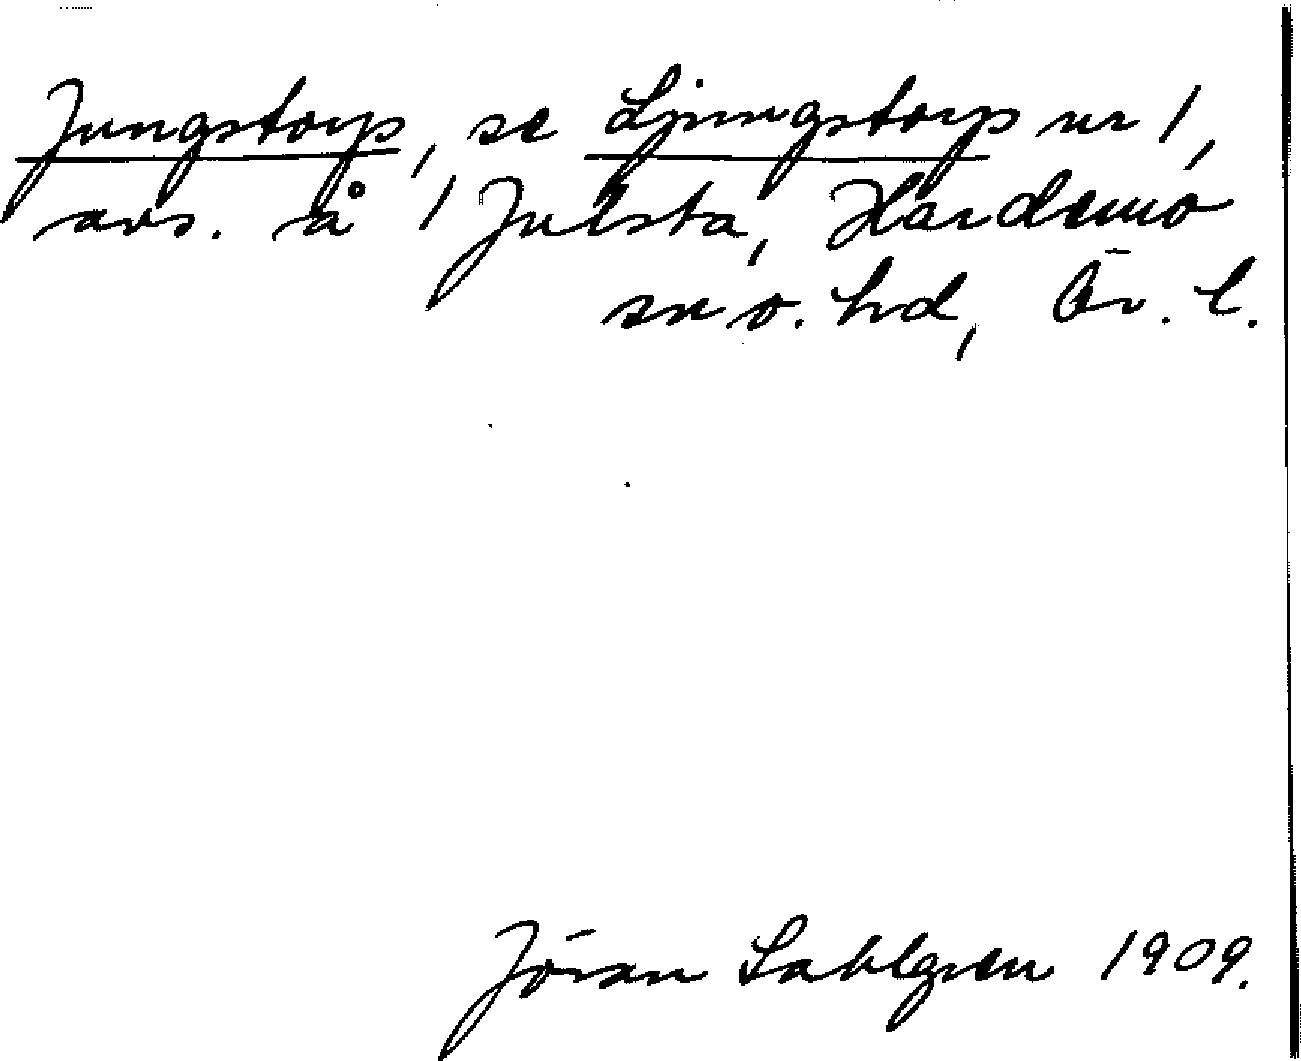 Jungstorp, se Ljungstorp nr 1,
avs. å 1 Julsta, Hardemo
sn o. hd, Ör. l.
Jöran Sahlgren 1909.